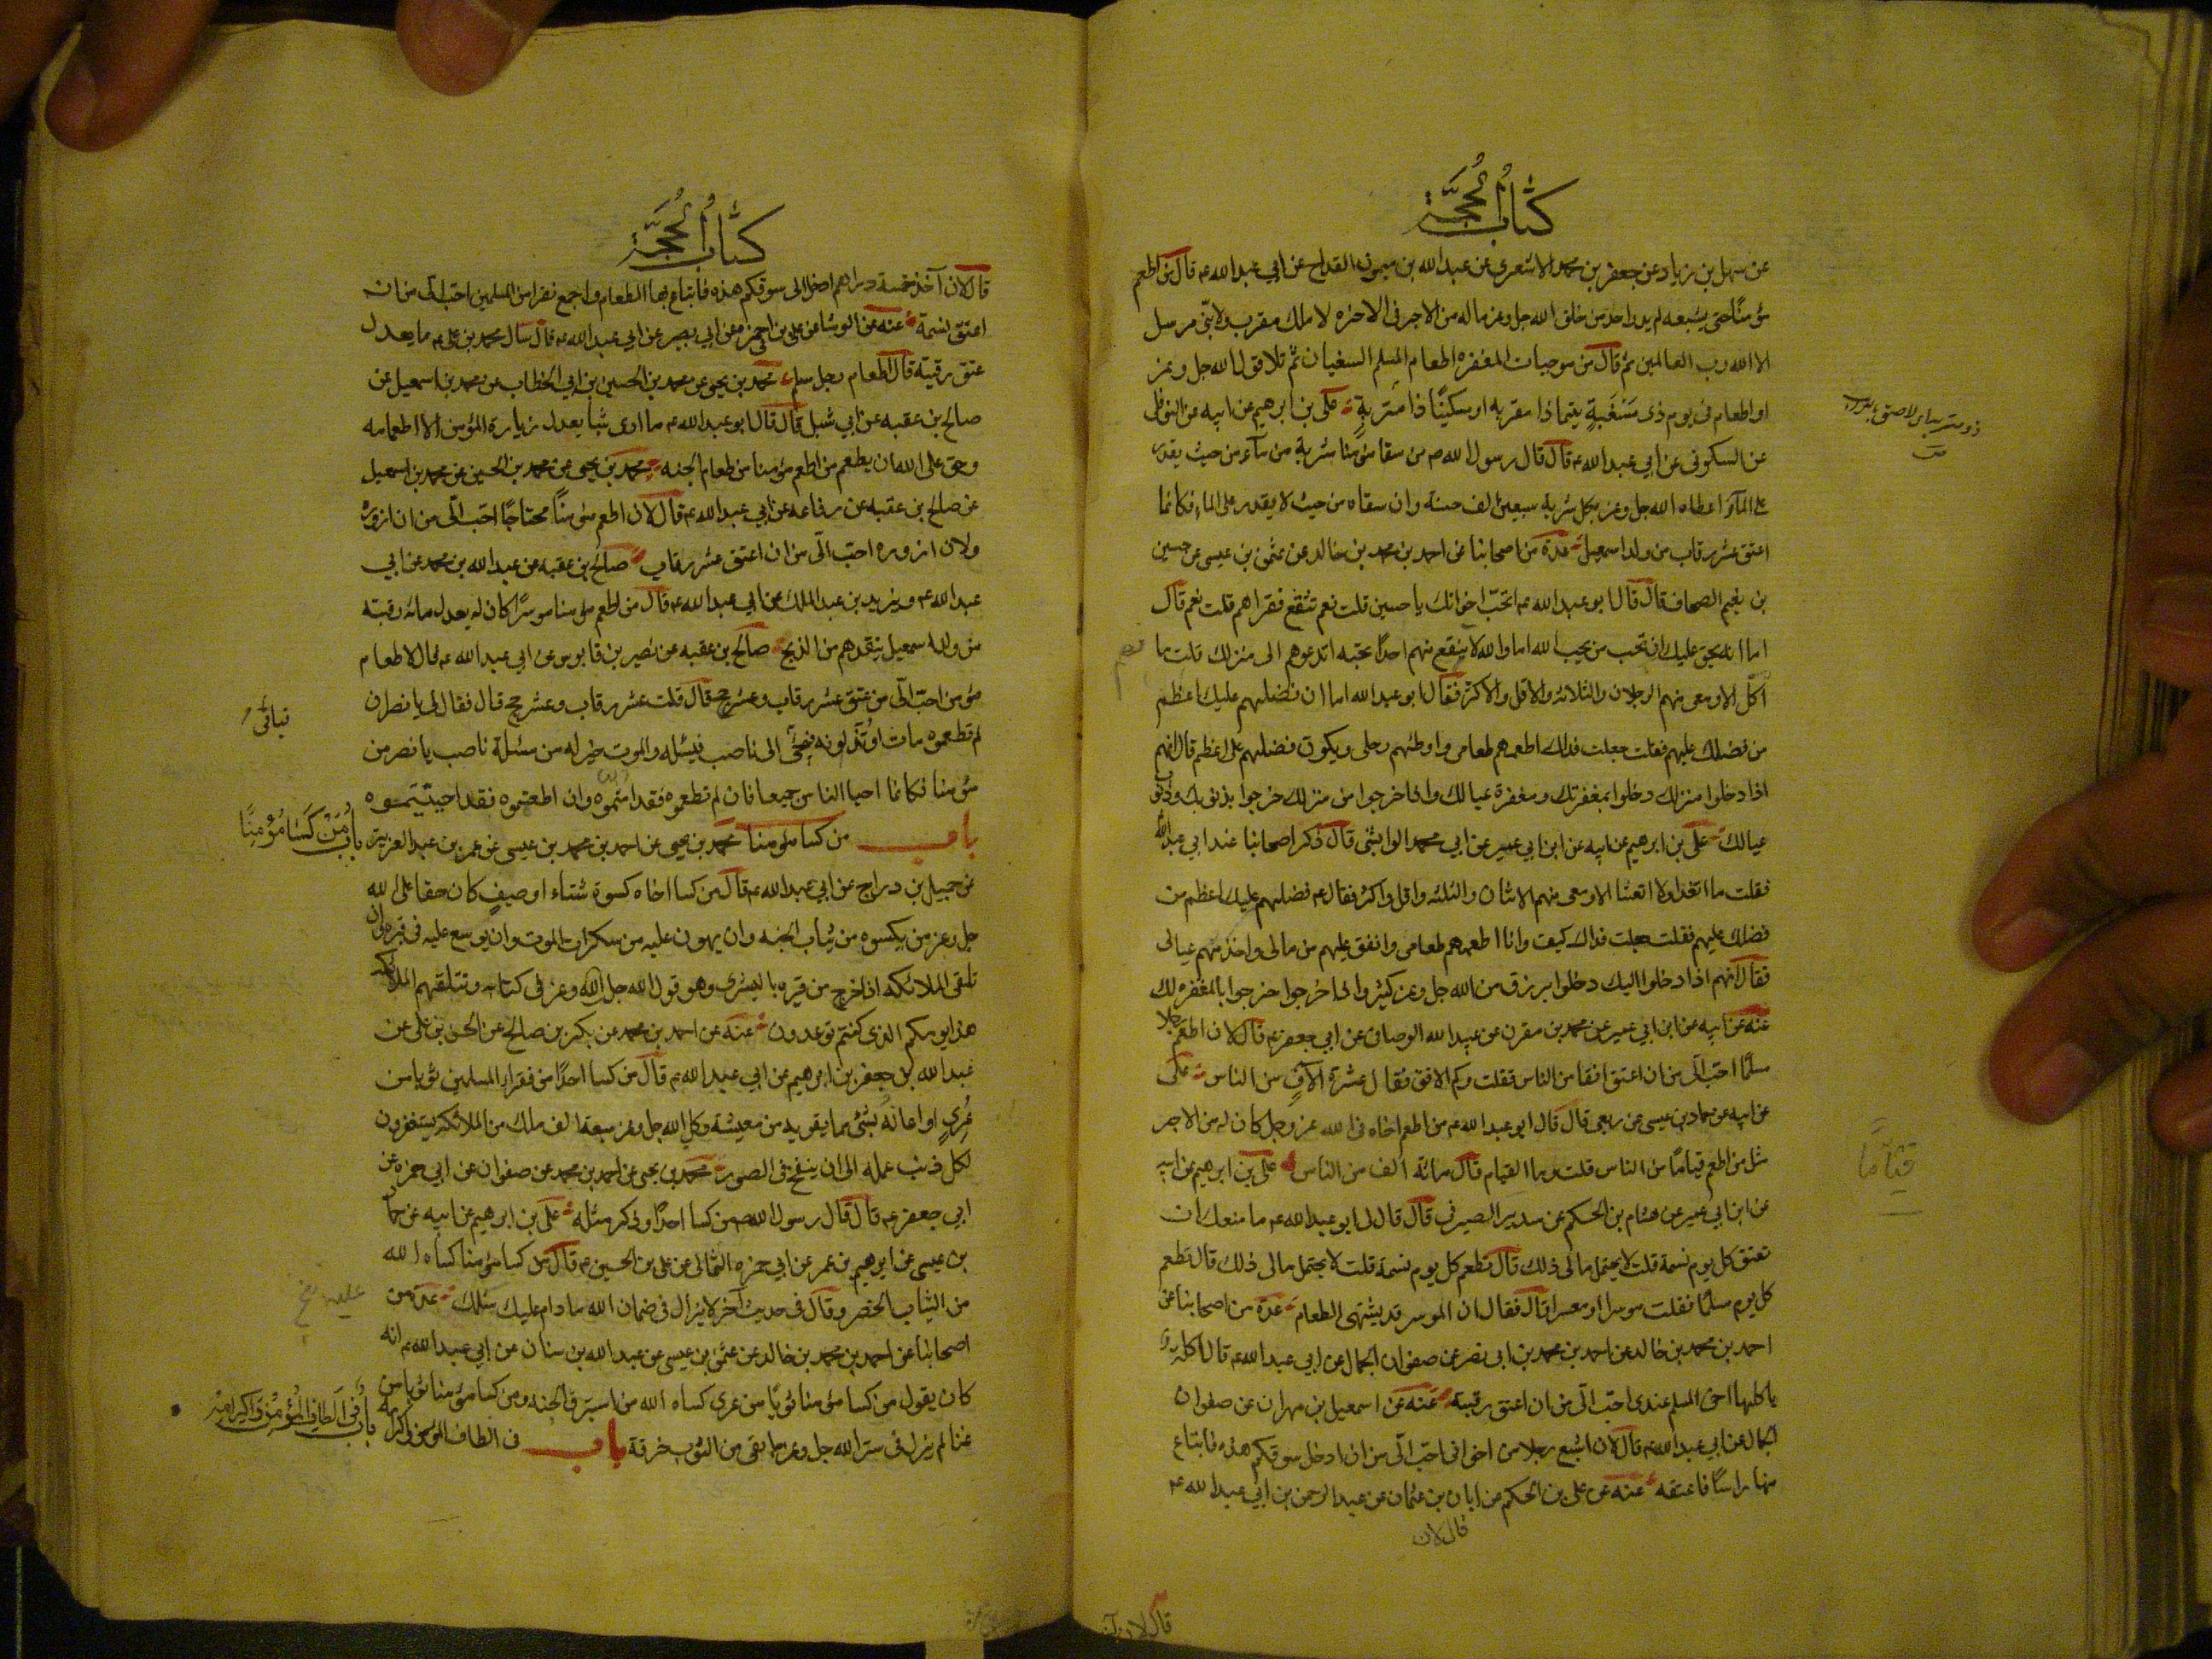 كتاب الحجة
عن سهل بن زياد عن جعفر بن محمد الاشعرى عن عبد الله بن ميمون القداح عن ابي عبد الله ع قال من اطعم
مؤمنًا حتى يشبعه لم يدر احد من خلق الله جل وعز ماله من الاجر فى الاخره لا ملك مقرب ولا نبى مرسل
الا الله رب العالمين ثم قال من موجبات المغفره اطعام المسلم السغبان ثم تلا قول الله جل وعز
او اطعام فى يوم ذى مَسْغَبَةٍ يتيما ذا مقربه او مسكينًا ذا متربةٍ على بن ابرهيم عن ابيه عن النوفلى
عن السكونى عن ابي عبد الله ع قال قال رسول الله ص من سقا مؤمنا شربة من مآء من حيث يقدر
على المآء اعطاه الله جل وعز بكل شربة سبعين الف حسنة وان سقاه من حيث لا يقدر على الماء فكانما
اعتق عشر رقاب من ولد اسمعيل عدة من اصحابنا عن احمد بن محمد بن خالد عن عثمن بن عيسى عن حسين
بن نعيم الصحاف قال قال ابو عبد الله ع اتحب اخوانك يا حسين قلت نعم تنفع فقراهم قلت نعم قال
اما انه يحق عليك ان تحب من يحب الله اما والله لا ينفع منهم احدًا تحبه اتدعوهم الى منزلك قلت ما
اكل الا ومعى منهم الرجلان والثلاثه والاقل والاكثر فقال ابو عبد الله اما ان فضلهم عليك اعظم
من فضلك عليهم فقلت جعلت فداك اطعمهم طعامى واوطئهم رحلى ويكون فضلهم على اعظم قال انهم
اذا دخلوا منزلك دخلوا بمغفرتك ومغفرة عيالك واذا خرجوا من منزلك خرجوا بذنوبك وذنوب
عيالك على بن ابرهيم عن ابيه عن ابن ابي عمير عن ابي محمد الوابشى قال ذكر اصحابنا عند ابي عبد الله
فقلت ما اتغدا ولا اتعشا الا ومعى منهم الاثنان والثلثه واقل واكثر فقال ع فضلهم عليك اعظم من
فضلك عليهم فقلت جعلت فداك كيف وانا اطعمهم طعامى وانفق عليهم من مالى واخدمهم عيالى
فقال انهم اذا دخلوا اليك دخلوا برزق من الله جل وعز كثير واذا خرجوا خرجوا بالمغفره لك
عنه عن ابيه عن ابن ابي عمير عن محمد بن مقرن عن عبيد الله الوصافى عن ابي جعفر ع قال لان اطعم رجلا
مسلمًا احب الى من ان اعتق افقا من الناس فقلت وكم الافق فقال عشرة الآفٍ من الناس على
عن ابيه عن حماد بن عيسى عن ربعى قال قال ابو عبد الله ع من اطعم اخاه فى الله عز وجل كان له من الاجر
مثل من اطعم قيامًا من الناس قلت وما القيام قال مائة الف من الناس على بن ابرهيم عن ابيه
عن ابن ابي عمير عن هشام بن الحكم عن سدير الصيرفى قال قال لى ابو عبد الله ع ما منعك ان
تعتق كل يوم نسمة قلت لا يحتمل مالى ذلك قال تطعم كل يوم نسمة قلت لا يحتمل مالى ذلك قال تطعم
كل يوم مسلمًا فقلت موسرا او معسرا قال فقال ان الموسر قد يشتهى الطعام عدة من اصحابنا عن
احمد بن محمد بن خالد عن احمد بن محمد بن ابى نصر عن صفوان الجمال عن ابي عبد الله ع قال اكلة
ياكلها اخى المسلم عندى احب الى من ان اعتق رقبة عنه عن اسمعيل بن مهران عن صفوان
الجمال عن ابي عبد الله ع قال لان اشبع رجلا من اخوانى احب الى من ان ادخل سوقكم هذه فابتاع
منها راسًا فاعتقه عنه عن على بن الحكم عن ابان بن عثمان عن عبد الرحمن بن ابي عبد الله ع
قال لان
قيامًا
كتاب الحجة
قال لان آخذ خمسة دراهم ادخل الى سوقكم هذه فابتاع بها الطعام واجمع نفرا من المسلمين احب الى من ان
اعتق نسمة عنه عن الوشا عن على بن ابى حمزه عن ابي بصير عن ابي عبد الله ع قال سال محمد بن على ع ما يعدل
عتق رقبة قال اطعام رجل مسلم محمد بن يحيى عن محمد بن الحسين بن ابي الخطاب عن محمد بن اسمعيل عن
صالح بن عقبه عن ابي شبل قال قال ابو عبد الله ع ما ارى شيا يعدل زيارة المؤمن الا اطعامه
وحق على الله ان يطعم من اطعم مؤمنا من طعام الجنه محمد بن يحيى عن محمد بن الحسين عن محمد بن اسمعيل
عن صالح بن عقبه عن رفاعه عن ابي عبد الله ع قال لان اطعم مؤمنًا محتاجًا احب الى من ان ازوره
ولان ازوره احب الى من ان اعتق عشر رقاب صالح بن عقبه عن عبد الله بن محمد عن ابي
عبد الله ع ويزيد بن عبد الملك عن ابي عبد الله ع قال من اطعم مؤمنا موسرًا كان له يعدل مائه رقبة
من ولد اسمعيل ينقذهم من الذبح صالح بن عقبه عن نصر بن قابوس عن ابي عبد الله ع قال لاطعام
مؤمن احب الى من عتق عشر رقاب وعشر حجج قال قلت عشر رقاب وعشر حجج قال فقال لى يا نصر ان
لم تطعموه مات او تُذلونه فيجئ الى ناصب فيسئله والموت خير له من مسئلة ناصب يا نصر من
مؤمنا فكانما احيا الناس جميعا فان لم تطعموه فقد امتموه وان اطعمتموه فقد احييتموه
باب من كسا مؤمنا محمد بن يحيى عن احمد بن محمد بن عيسى عن عمر بن عبد العزيز
عن جميل بن دراج عن ابي عبد الله ع قال من كسا اخاه كسوة شتاء او صيفٍ كان حقا على الله
جل وعز من يكسوه من ثياب الجنه وان يهون عليه من سكرات الموت وان يوسع عليه فى قبره وان
تلقى الملائكه اذا خرج من قبره بالبشرى وهو قول الله جل الله وعز فى كتابه وتتلقهم الملائكه
هذا يومكم الذى كنتم توعدون عنه عن احمد بن محمد عن بكر بن صالح عن الحسن بن على عن
عبد الله بن جعفر بن ابرهيم عن ابي عبد الله ع قال من كسا احدًا من فقراء المسلمين ثوبا من
عُرىٍ او اعانهُ بشئ مما يقويه من معيشة وكل الله جل وعز سبعة الف ملك من الملائكه يستغفرون
لكل ذنب عمله الى ان ينفخ فى الصور محمد بن يحيى عن احمد بن محمد عن صفوان عن ابي حمزه عن
ابي جعفر ع قال قال رسول الله ص من كسا احدًا وذكر مثله على بن ابرهيم عن ابيه عن حماد
بن عيسى عن ابرهيم بن عمر عن ابي حمزه الثمالى عن على بن الحسين ع قال من كسا مؤمنا كساه الله
من الثياب الخضر وقال فى حديث آخر لا يزال فى ضمان الله ما دام عليك سلك عدة من
اصحابنا عن احمد بن محمد بن خالد عن عثمن بن عيسى عن عبد الله بن سنان عن ابي عبد الله ع انه
كان يقول من كسا مؤمنا ثوبًا من عرى كساه الله من استبرق الجنه ومن كسا مؤمنا ثوبا من
غنا لم يزل فى ستر الله جل وعز ما بقى من الثوب خرقة باب فى الطاف المؤمن واكرامه
بابُ مَنْ كَسَا مُؤْمِنًا
عليه خ
بابٌ فى الطاف المؤمن واكرامه